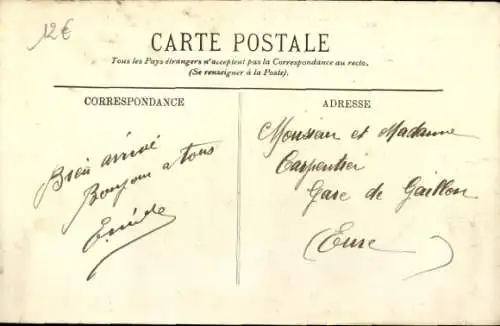 12€
CARTE POSTALE
Tous les Pays étrangers n'acceptent pas la Correspondance au recto.
(Se renseigner à la Poste).
CORRESPONDANCE
ADRESSE
Bien arrivé
Bonjour a tous
Monsieur et Madame
Carpentier
Gare de Gaillon
(Eure)